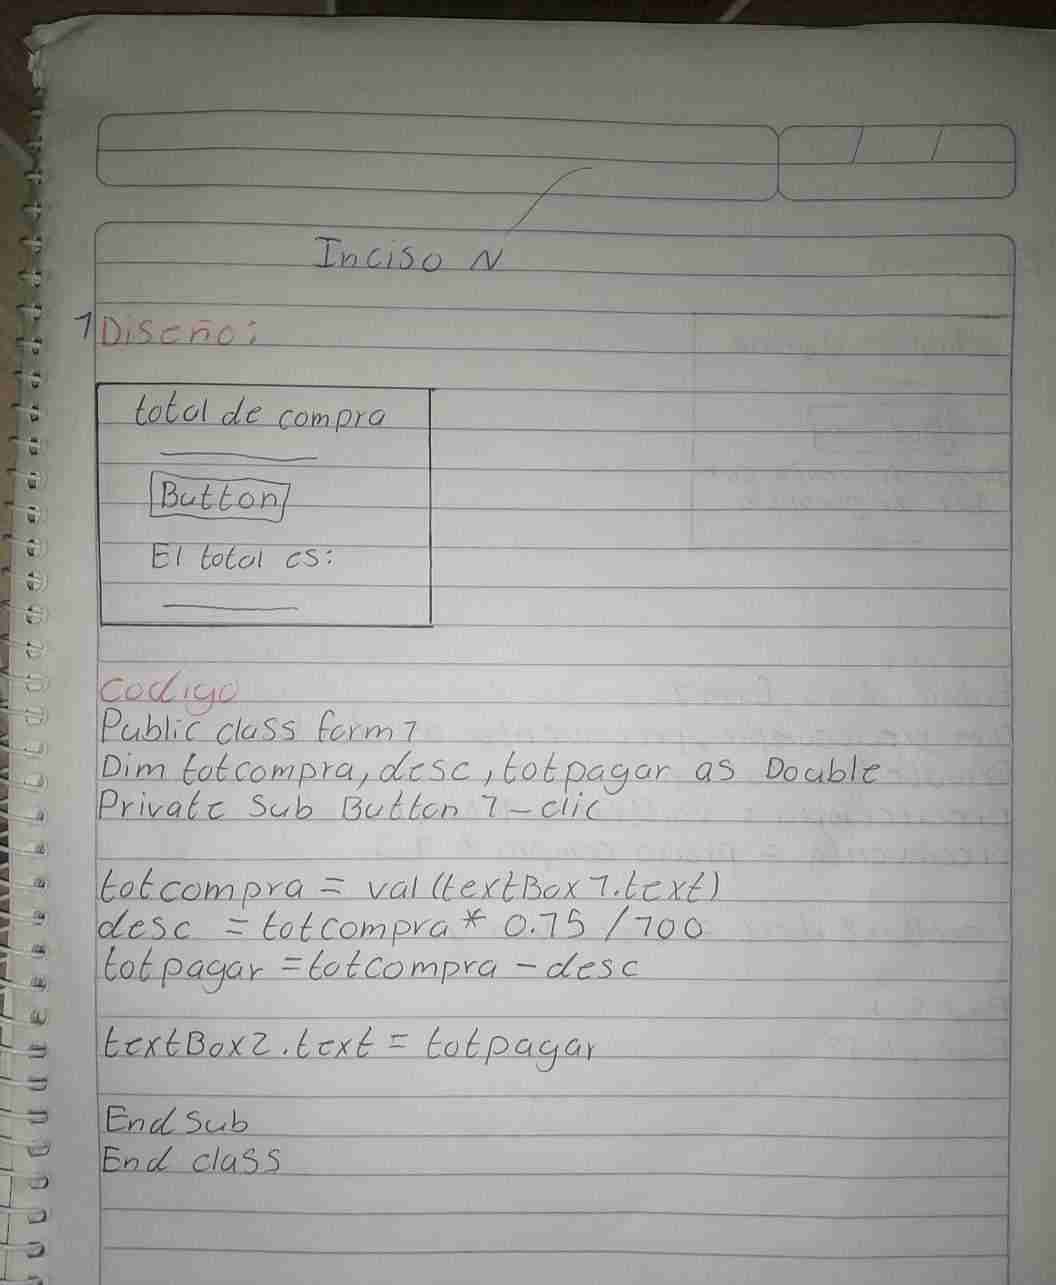 Inciso N
1 Diseño:
total de compra
Button
El total es:
codigo
Public class form1
Dim totcompra, desc, totpagar as Double
Private Sub Button 1-clic
totcompra = val(textBox1.text)
desc = totcompra * 0.15 /100
totpagar = totcompra - desc
textBox2.text = totpagar
End Sub
End class